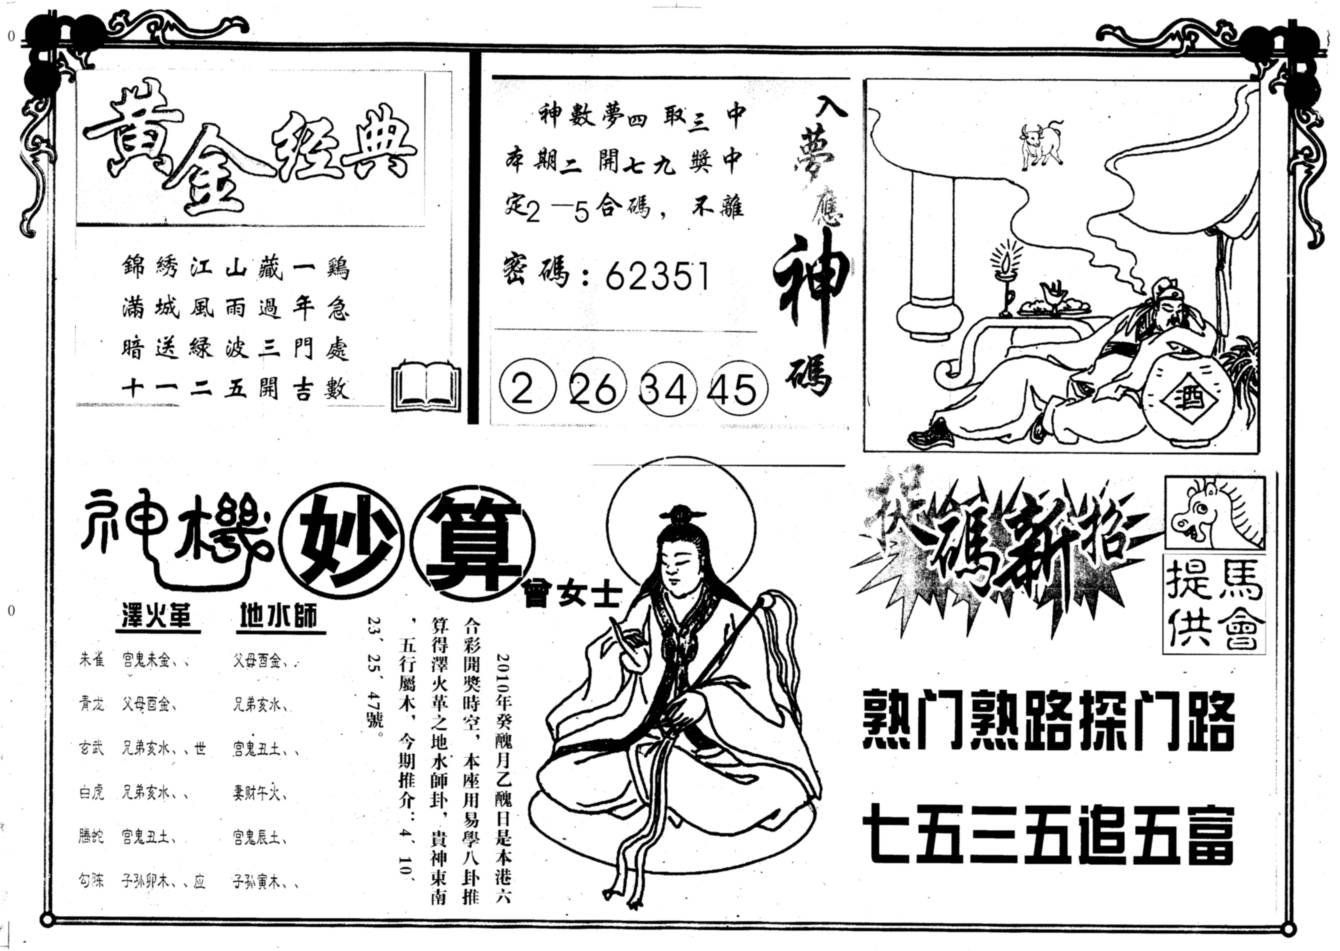 黃金經典
錦綉江山藏一鷄
滿城風雨過年急
暗送緑波三門處
十一二五開吉數
入夢應神碼
神數夢四取三中
本期二開七九獎中
定2一5合碼，不離
密碼：62351
2 26 34 45
酒
神機妙算
曾女士
澤火革 地水師
朱雀 官鬼未金、、 父母酉金、、
青龙 父母酉金、 兄弟亥水、
玄武 兄弟亥水、、世 官鬼丑土、、
白虎 兄弟亥水、、 妻财午火、
螣蛇 官鬼丑土、 官鬼辰土、
勾陈 子孙卯木、、应 子孙寅木、、
2010年癸醜月乙醜日是本港六
合彩開獎時空，本座用易學八卦推
算得澤火革之地水師卦，貴神東南
，五行屬木，今期推介：4、10、
23、25、47號。
伏碼新招
馬會
提供
熟门熟路探门路
七五三五追五富
0
0